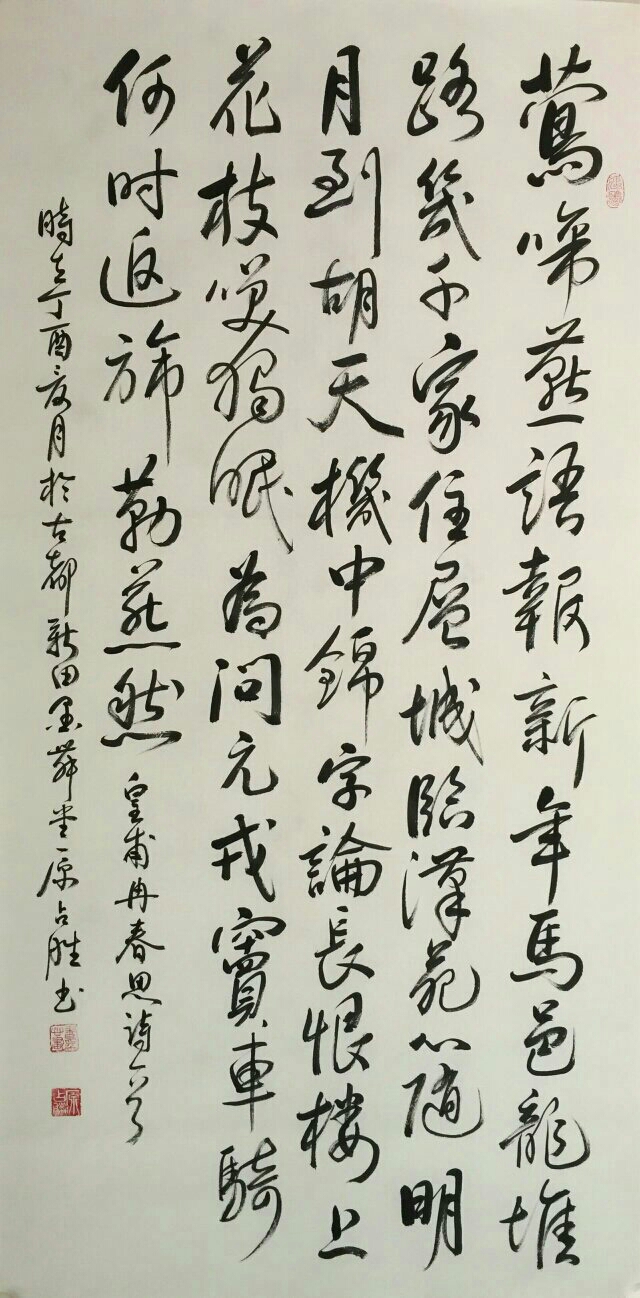 鶯啼燕語報新年馬邑龍堆
路幾千家住層城臨漢苑心隨明
月到胡天機中錦字論長恨楼上
花枝笑獨眠為問元戎竇車騎
何时返旆勒燕然 皇甫冉春思诗一首
時在丁酉夏月於古都新田墨舞堂原占胜书